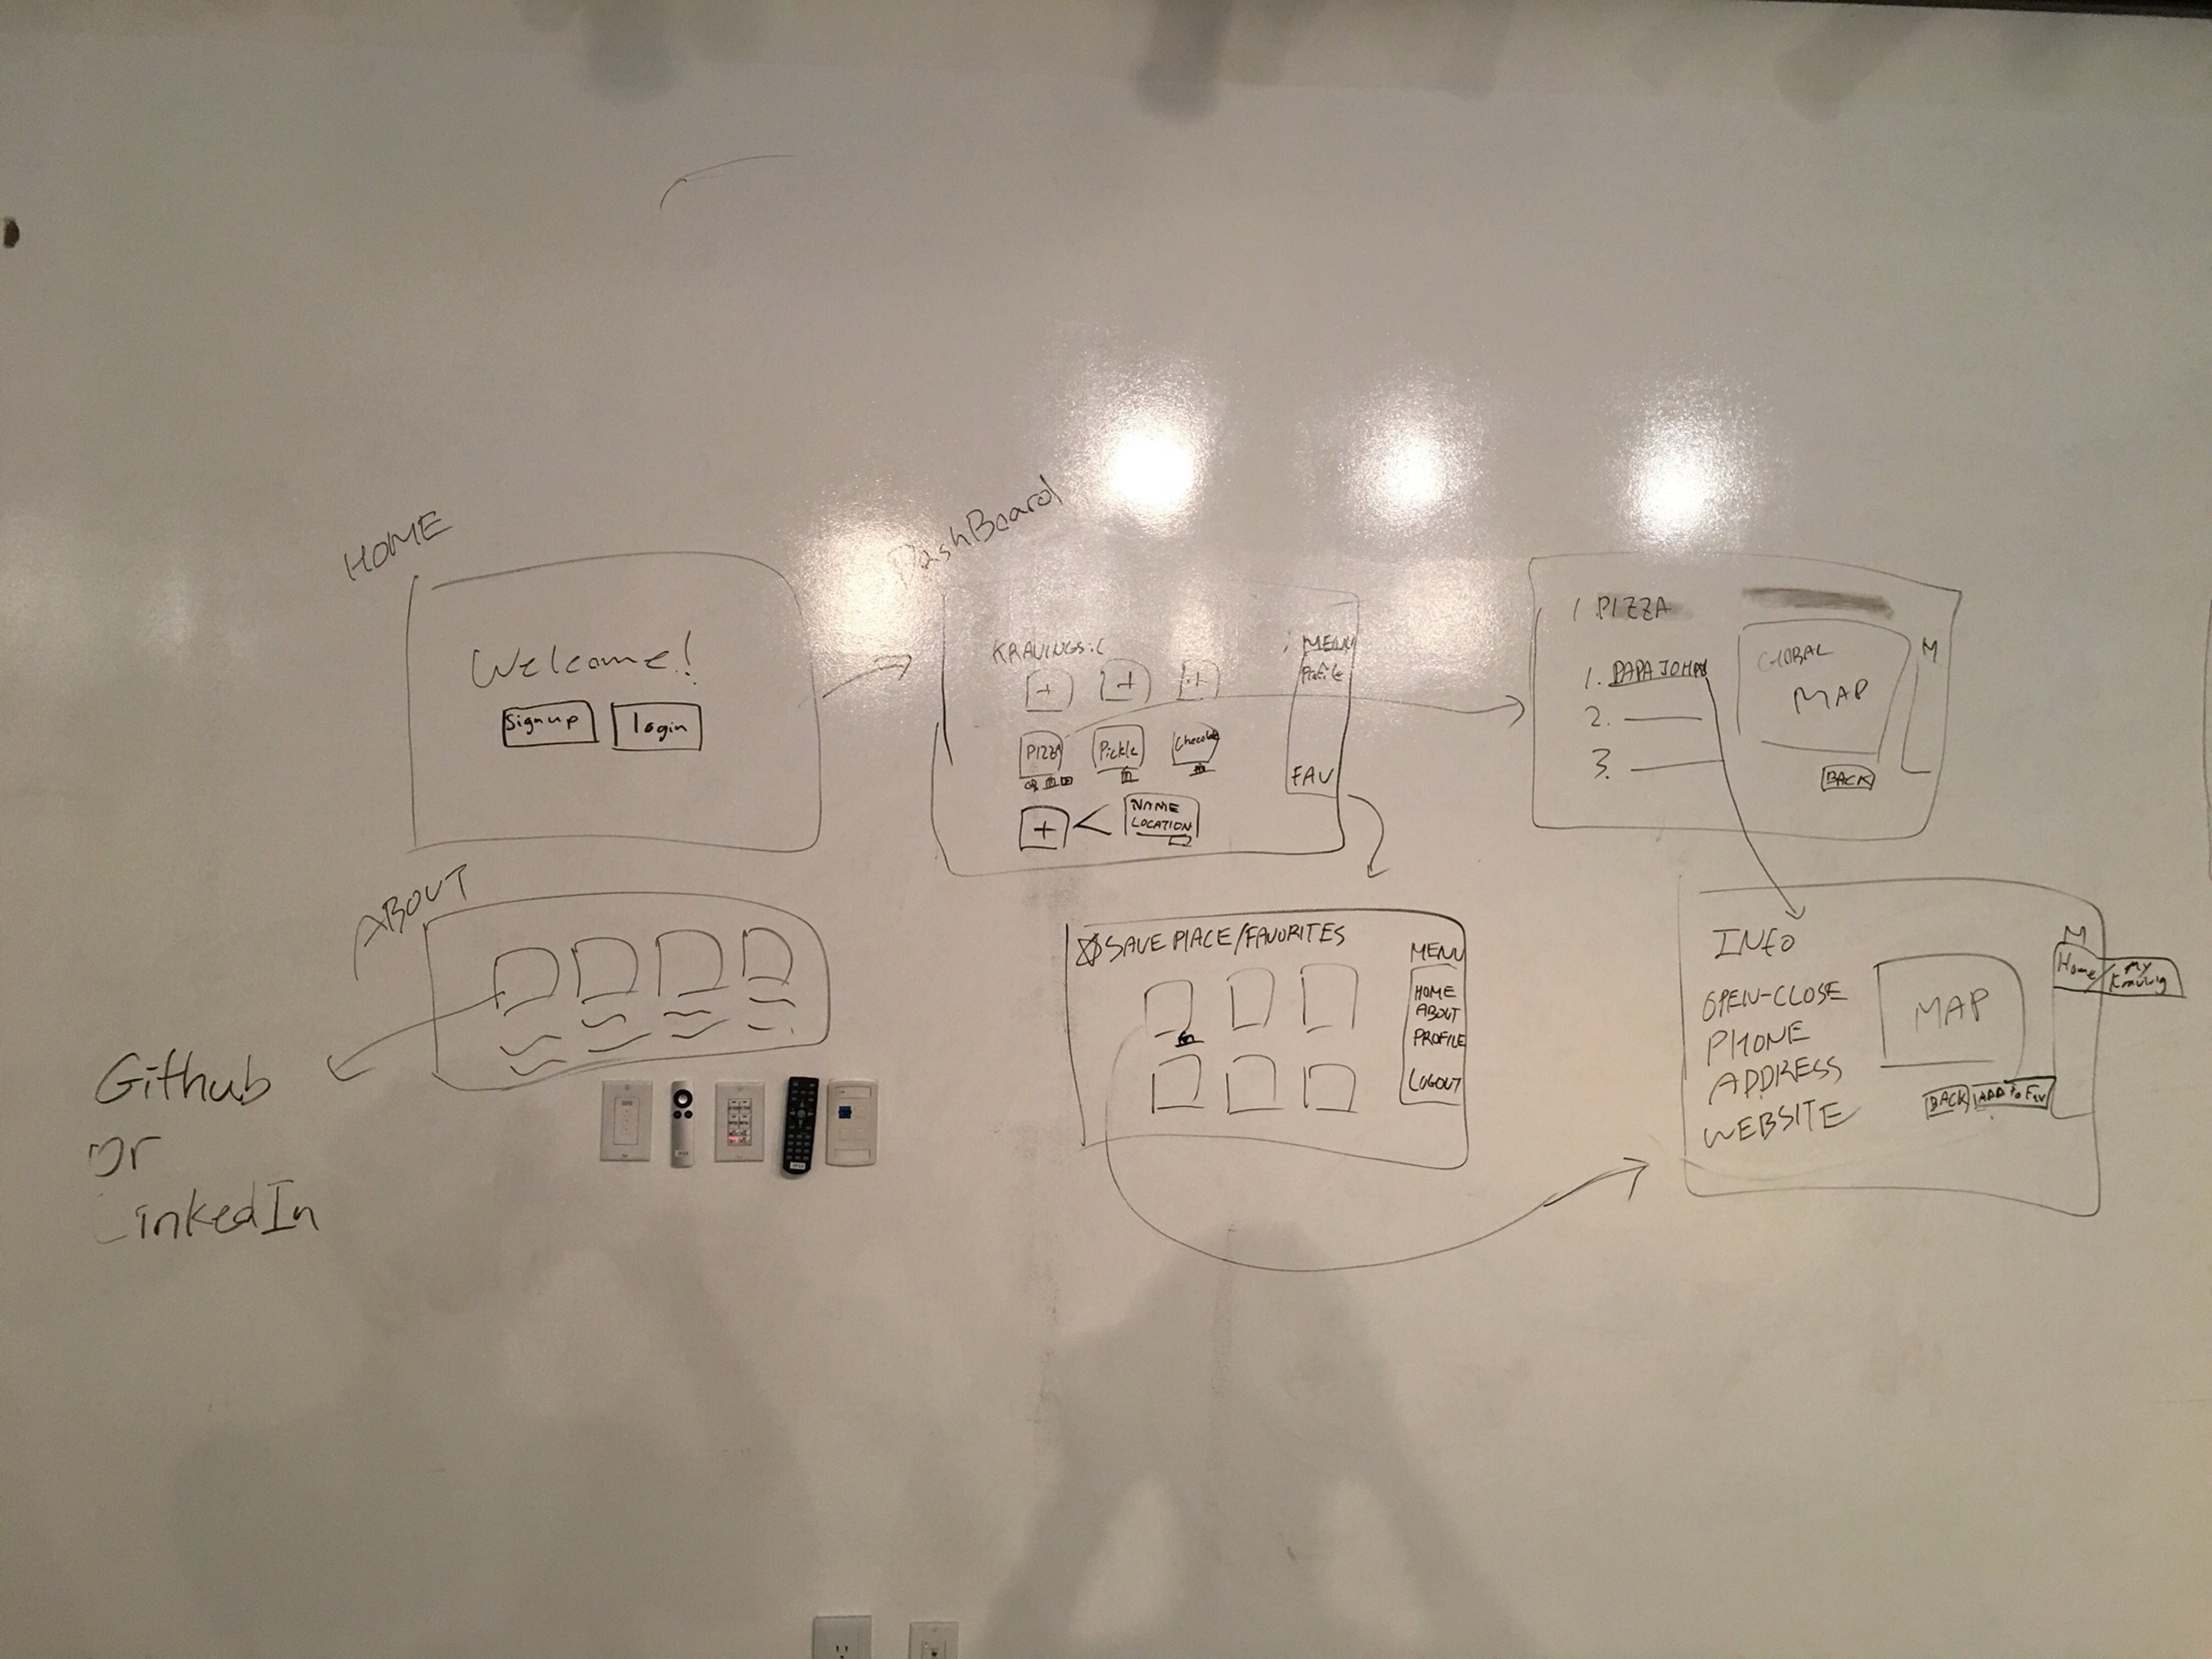 HOME
Welcome!
Signup
login
DashBoard
KRAVINGS:(
+ + +
PIZZA
Pickle
+
NAME
LOCATION
MENU
Profile
FAV
1 PIZZA
1. PAPA JOHNS
2.
3.
GLOBAL
MAP
BACK
M
ABOUT
Github
or
LinkedIn
SAVE PLACE/FAVORITES
MENU
HOME
ABOUT
PROFILE
LOGOUT
INFO
OPEN-CLOSE
PHONE
ADDRESS
WEBSITE
MAP
BACK
ADD to FAV
M
Home/
My
Kraving